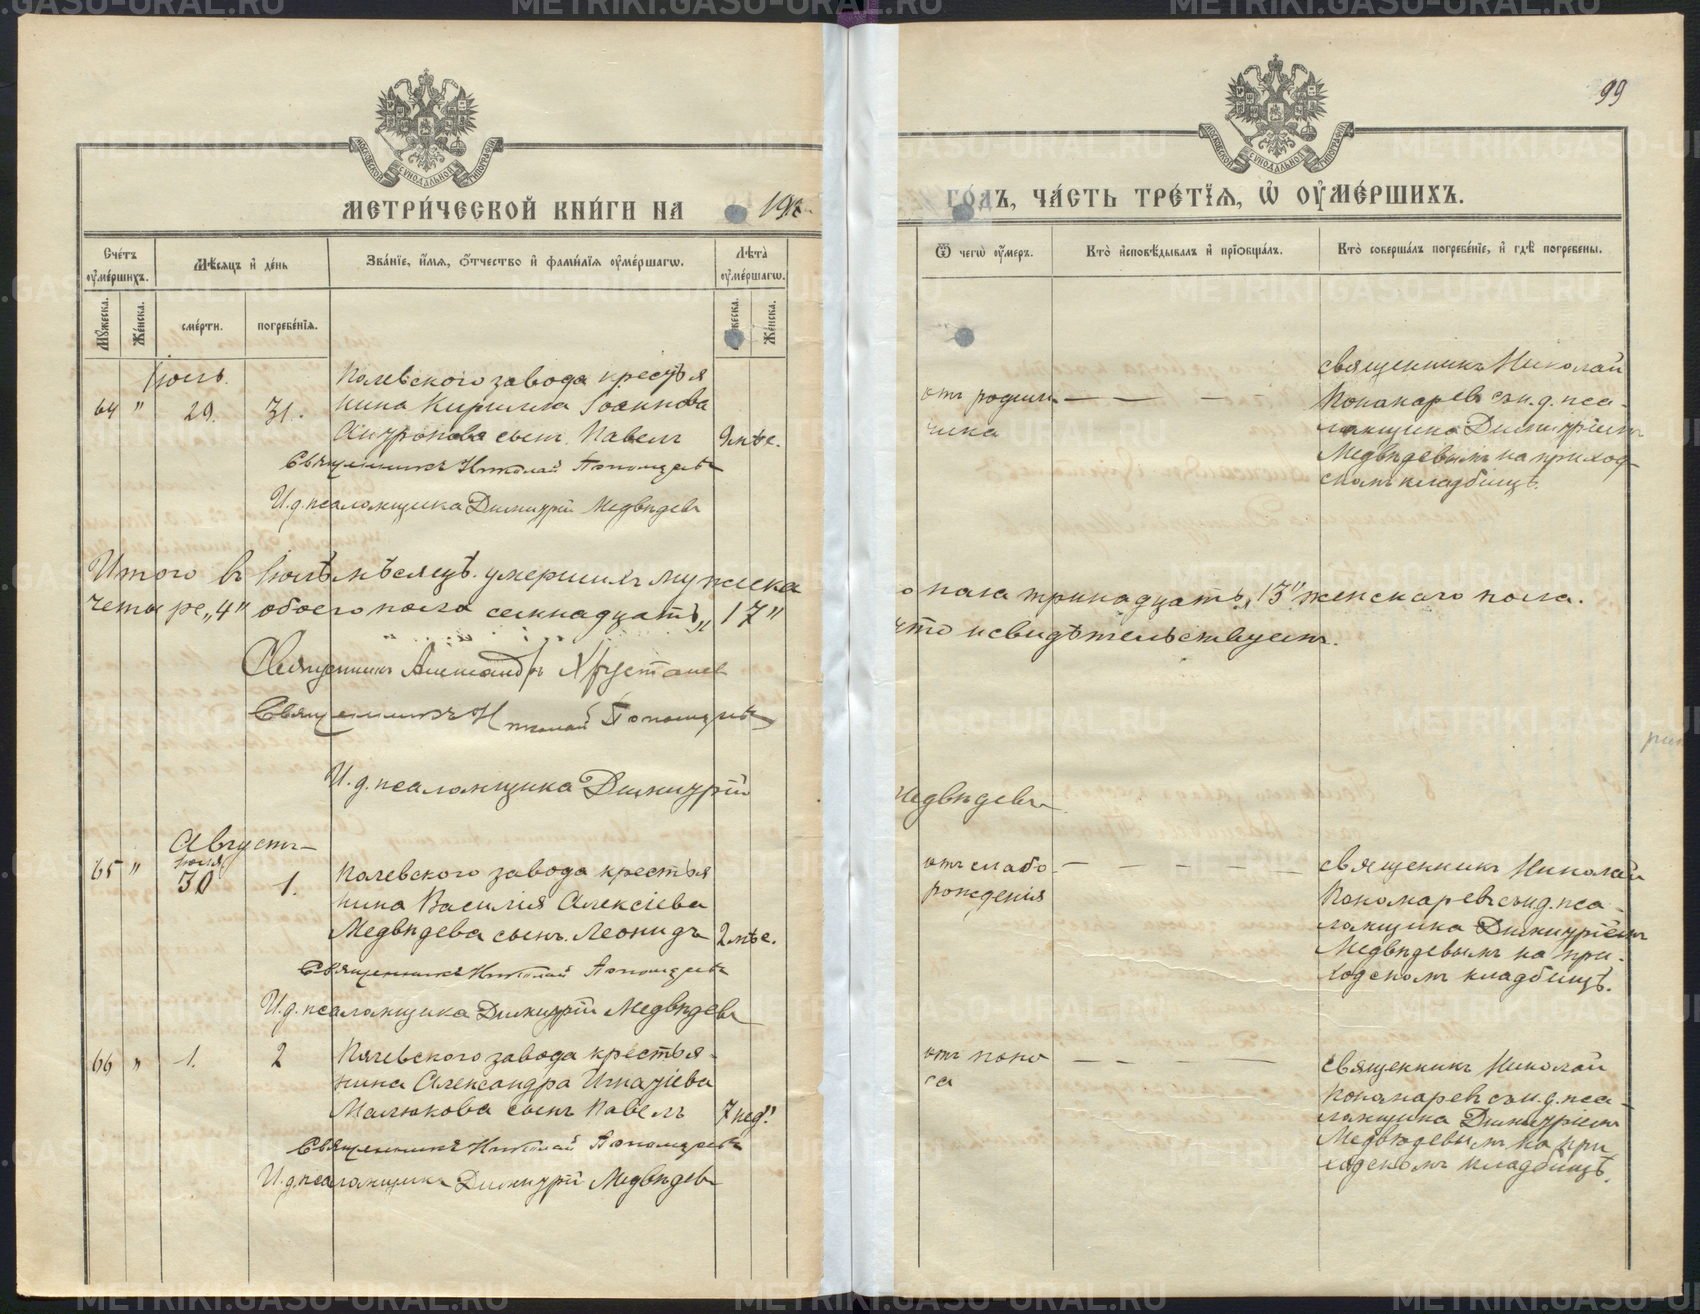 МЕТРИ́ЧЕСКОЙ КНИ́ГИ НА 191
ГО́ДЪ, ЧА́СТЬ ТРЕ́ТІЯ, Ѽ ОУ҆МЕ́РШИХЪ.
99
Сче́тъ оу҆ме́ршихъ.
Мѣ́сяцъ и҆ де́нь
Зва́нїе, и҆́мя, ѻ҆́тчество и҆ фами́лїя оу҆ме́ршагѡ.
Лѣ́та оу҆ме́ршагѡ.
Ѿ чегѡ̀ оу҆́меръ.
Кто̀ и҆сповѣ́дывалъ и҆ прїѻбща́лъ.
Кто̀ соверша́лъ погребе́нїе, и҆ гдѣ̀ погребены.
Мꙋ́жеска.
Же́нска.
сме́рти.
погребе́нїѧ.
Же́нска.
Іюль.
64 " 29. 31.
Полевского завода крестья
нина Кирилла Іоаннова
сынъ Павелъ 9 мѣс.
Священникъ Николай Пономаревъ
И. д. псаломщика Димитрій Медвѣдевъ
отъ родим
чика
священникъ Николай
Пономаревъ съ и. д. пса-
ломщика Димитріемъ
Медвѣдевымъ на приход
скомъ кладбищѣ.
Итого въ Іюлѣ мѣсяцѣ умершихъ мужска
го пола тринадцать „13" женскаго пола.
четыре „4" обоего пола семнадцать „17"
что и свидѣтельствуемъ.
Священникъ Александръ Хрусталев
Священникъ Николай Пономаревъ
И. д. псаломщика Димитрій
Медвѣдевъ
Августъ
65 " іюля 30 1.
Полевского завода крестья
нина Василія Алексіева
Медвѣдева сынъ Леонидъ 2 мѣс.
Священникъ Николай Пономаревъ
И. д. псаломщика Димитрій Медвѣдевъ
отъ слабо
рожденія
священникъ Николай
Пономаревъ съ и. д. пса-
ломщика Димитріемъ
Медвѣдевымъ на при-
ходскомъ кладбищѣ.
66 " 1. 2
Полевского завода крестья-
нина Александра Игнатіева
Малюкова сынъ Павелъ 7 нед.
Священникъ Николай Пономаревъ
И. д. псаломщика Димитрій Медвѣдевъ
отъ поно
са
священникъ Николай
Пономаревъ съ и. д. пса-
ломщика Димитріемъ
Медвѣдевымъ на при
ходскомъ кладбищѣ.
METRIKI.GASU-URAL.RU